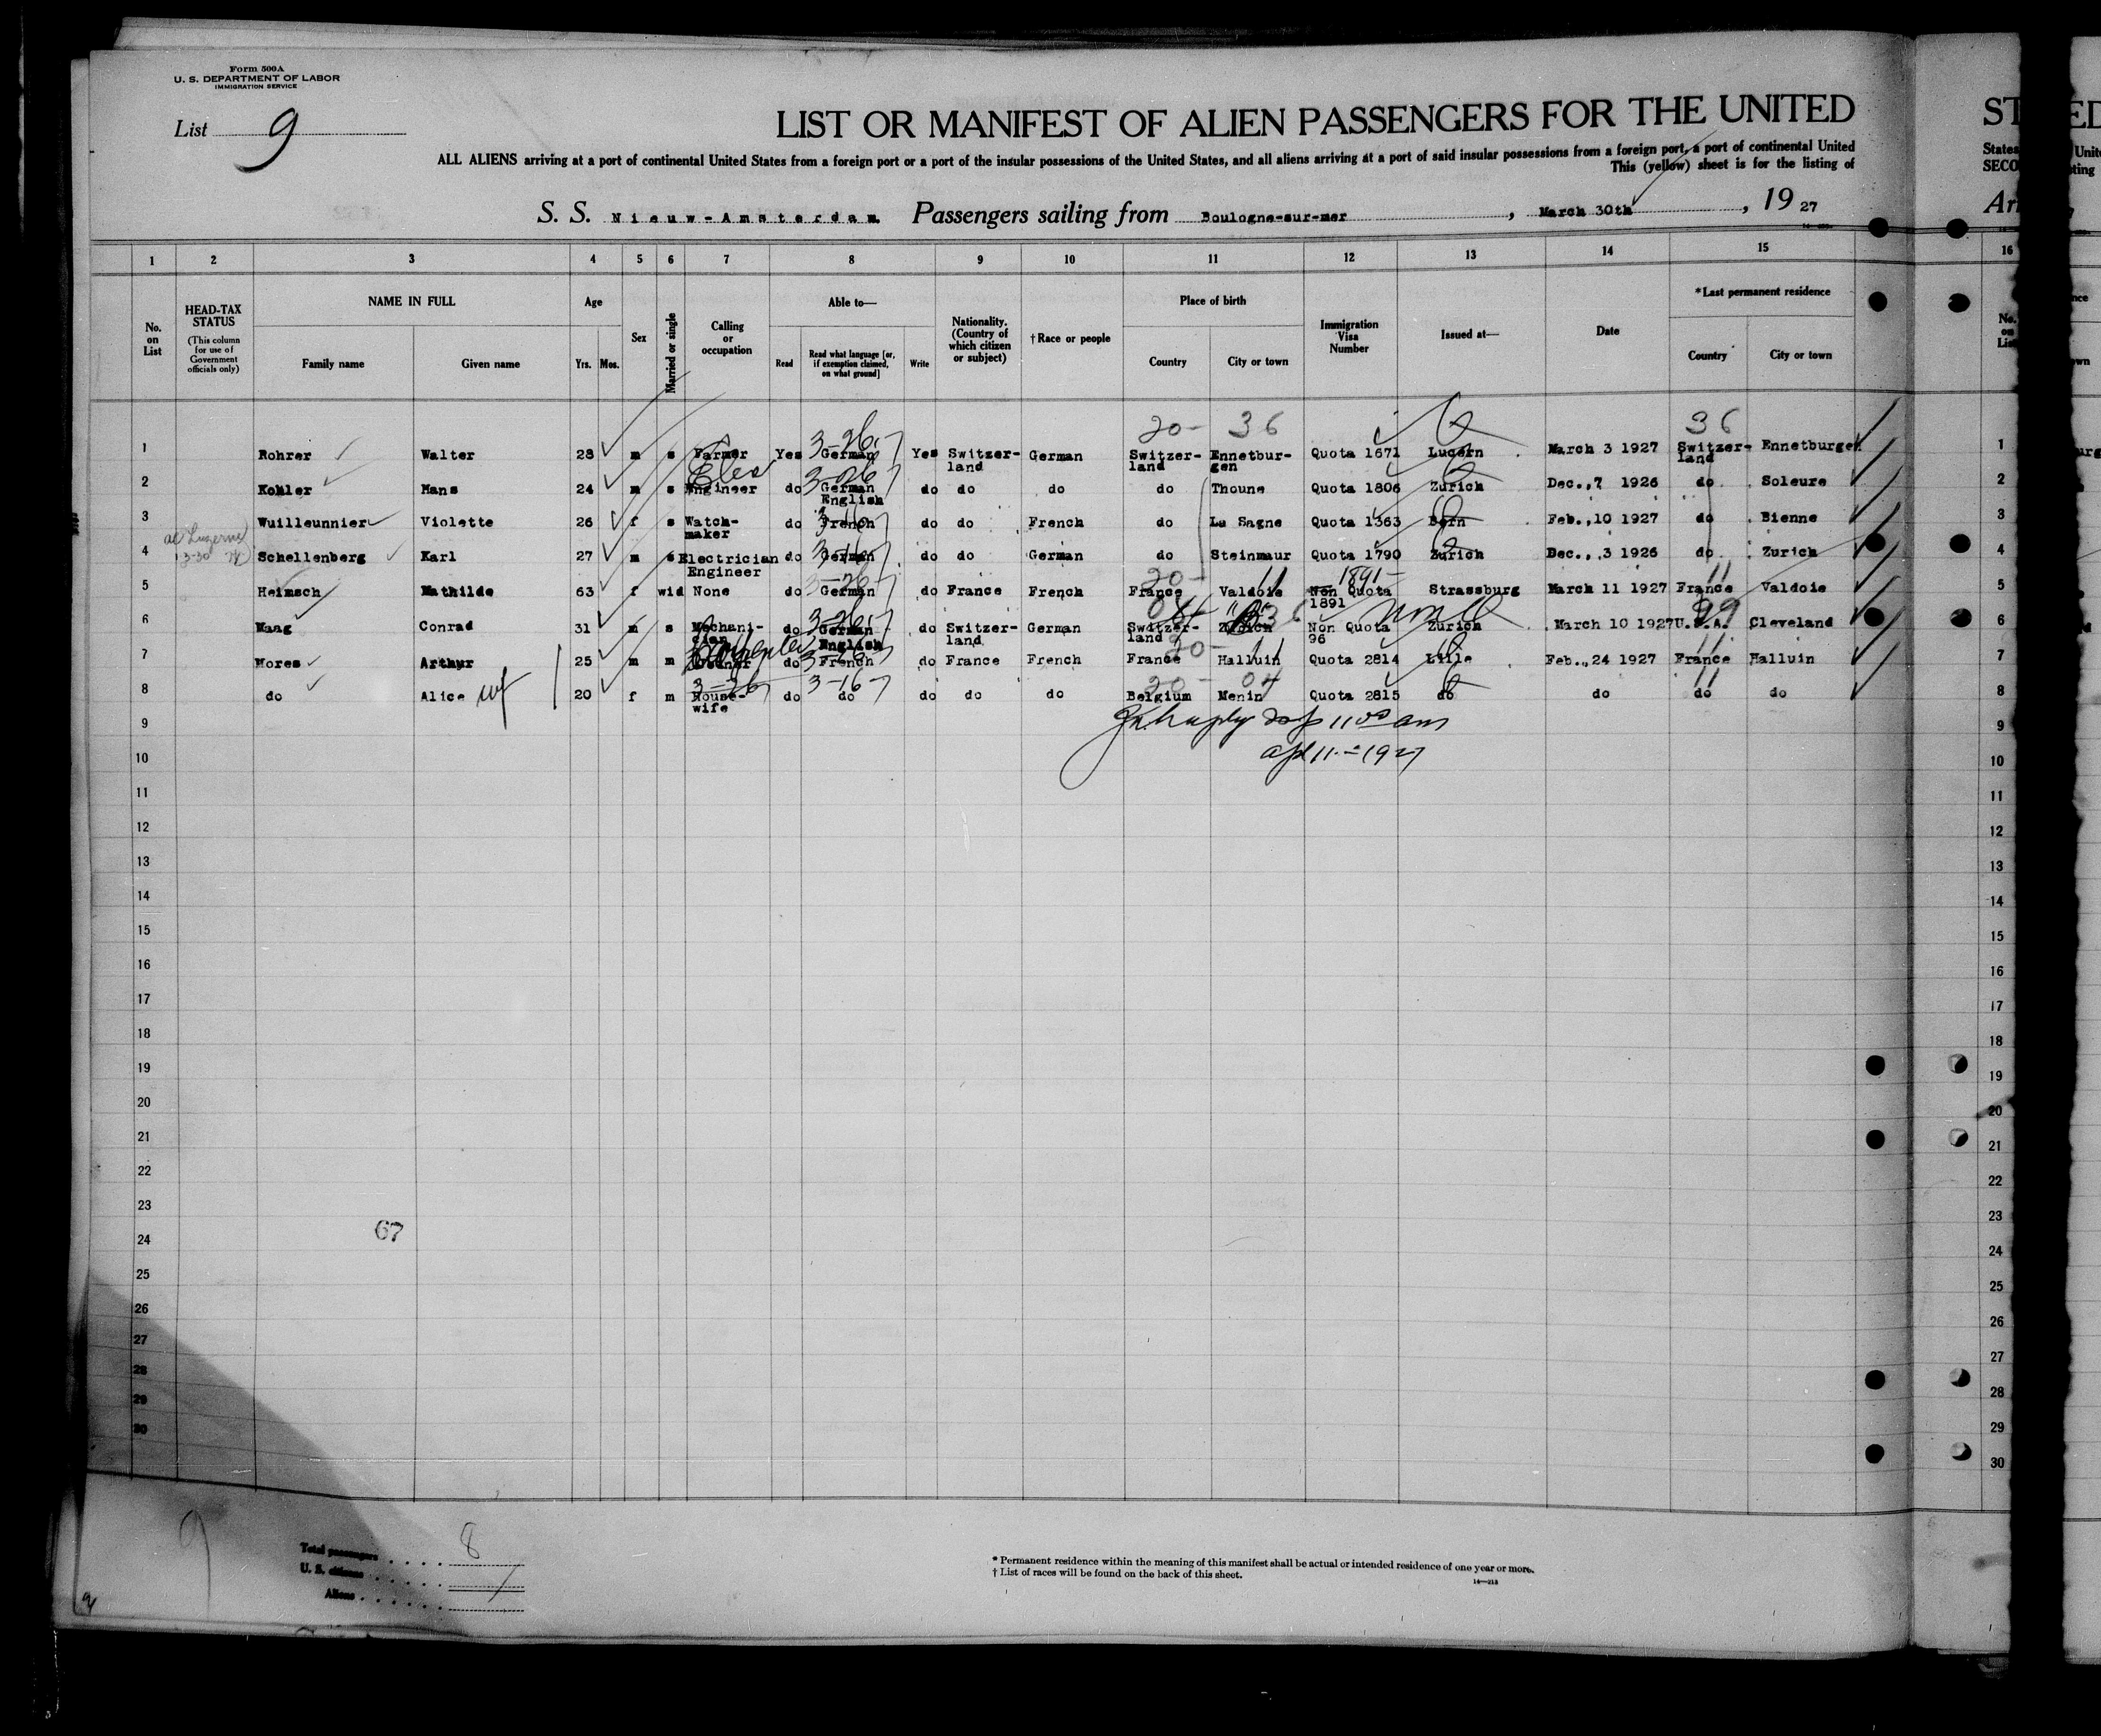 Form 500A
U. S. DEPARTMENT OF LABOR
IMMIGRATION SERVICE
List 9
LIST OR MANIFEST OF ALIEN PASSENGERS FOR THE UNITED
ALL ALIENS arriving at a port of continental United States from a foreign port or a port of the insular possessions of the United States, and all aliens arriving at a port of said insular possessions from a foreign port, a port of continental United
This (yellow) sheet is for the listing of
S. S. Nieuw-Amsterdam Passengers sailing from Boulogne-sur-mer, March 30th, 1927
1 2 3 4 5 6 7 8 9 10 11 12 13 14 15 16
No. on List
HEAD-TAX STATUS (This column for use of Government officials only)
NAME IN FULL Family name Given name
Age Yrs. Mos.
Sex
Married or single
Calling or occupation
Able to— Read Read what language [or, if exemption claimed, on what ground] Write
Nationality. (Country of which citizen or subject)
†Race or people
Place of birth Country City or town
Immigration Visa Number
Issued at—
Date
*Last permanent residence Country City or town
20- 36 36
1 Rohrer Walter 28 m s Farmer Yes German Yes Switzer-land German Switzer-land Ennetbur-gen Quota 1671 Lucern March 3 1927 Switzer-land Ennetburgen 1
2 Kohler Hans 24 m s Engineer do German English do do do do Thoune Quota 1806 Zurich Dec., 7 1926 do Soleure 2
3 Wuilleunnier Violette 26 f s Watch-maker do French do do French do La Sagne Quota 1363 Bern Feb., 10 1927 do Bienne 3
4 Schellenberg Karl 27 m s Electrician Engineer do German do do German do Steinmaur Quota 1790 Zurich Dec., 3 1926 do Zurich 4
5 Heimsch Mathilde 63 f wid None do German do France French France Valdoie Non Quota 1891 Strassburg March 11 1927 France Valdoie 5
6 Maag Conrad 31 m s Mechani-cian do German English do Switzer-land German Switzer-land Zurich Non Quota 96 Zurich March 10 1927 U.S.A. Cleveland 6
7 Mores Arthur 25 m m do French do France French France Halluin Quota 2814 Lille Feb., 24 1927 France Halluin 7
8 do Alice wf 20 f m House-wife do do do do do Belgium Menin Quota 2815 do do do do 8
9
10
11 11
12 12
13 13
14 14
15 15
16 16
17 17
18 18
19 19
20 20
21 21
22 22
23 23
67
24 24
25 25
26 26
27 27
28 28
29 29
30 30
Total passengers 8
U. S. citizens
Aliens
* Permanent residence within the meaning of this manifest shall be actual or intended residence of one year or more.
† List of races will be found on the back of this sheet.
14—213